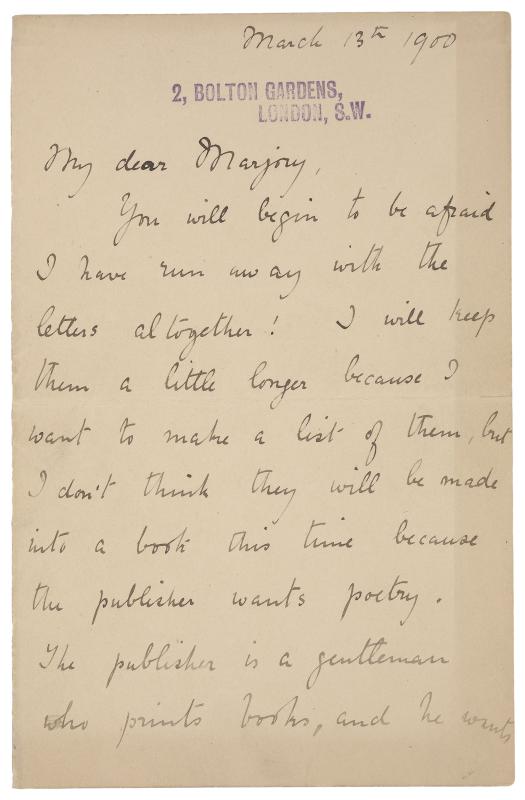 March 13th 1900
2, BOLTON GARDENS,
LONDON, S.W.
My dear Marjory,
You will begin to be afraid
I have run away with the
letters altogether! I will keep
them a little longer because I
want to make a list of them, but
I don't think they will be made
into a book this time because
the publisher wants poetry.
The publisher is a gentleman
who prints books, and he wants